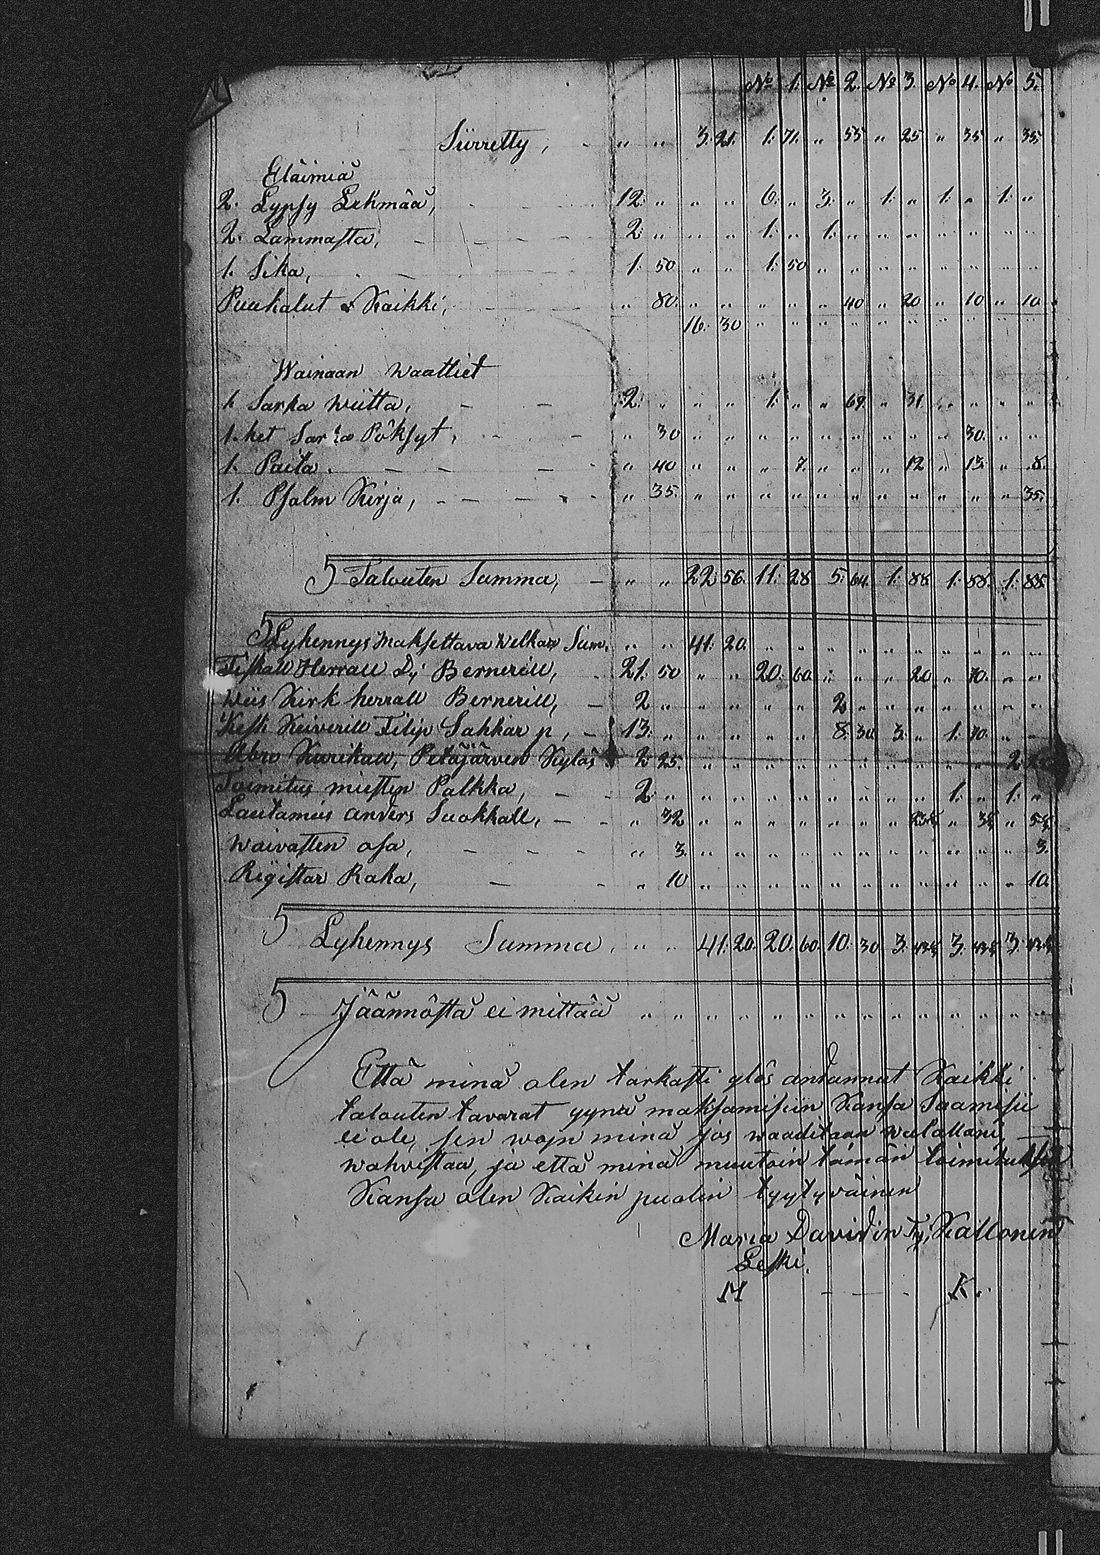 № 1. № 2. № 3. № 4. № 5.
Siirretty, - „ „ 3. 21. 1. 71. „ 55 „ 25 „ 35 „ 35
Eläimiä
2. Lypsy Lehmää, 12. „ „ „ 6. „ 3. „ 1. „ 1. „ 1. „
2. Lammasta, 2. „ „ „ 1. „ 1. „ „ „ „ „ „ „
1. Sika, 1. 50 „ „ 1. 50 „ „ „ „ „ „ „ „
Puukalut Kaikki, „ 80. „ „ „ „ „ 40 „ 20 „ 10 „ 10
16. 30 „ „ „ „ „ „ „ „ „ „
Wainaan waattiet
1. Sarka wiitta, 2. „ „ „ 1. „ „ 69. „ 31. „ „ „ „
1. ket Sarka Pöksyt, „ 30 „ „ „ „ „ „ „ „ „ 30. „ „
1. Paita. „ 40 „ „ „ 7. „ „ „ 12 „ 13. „ 8.
1. Psalm Kirja, „ 35. „ „ „ „ „ „ „ „ „ „ „ 35.
Talouten Summa, - „ „ 22. 56. 11. 28 5. 64. 1. 88 1. 88. 1. 88
Lyhennys maksettava Welkain Sum. „ „ 41. 20.
Herrall Bernerill, 21. 50 „ „ 20. 60. „ „ „ 20. „ 70. „ „
Wiis Kirk herrall Bernerill, - 2 „ „ „ „ „ 2 „ „ „ „ „ „ „
Filip Sakkar p, - 13. „ „ „ „ „ 8. 30 3. „ 1. 70. „ „
Abro Kurikall, Petäjärven Kyläs 2 25. „ „ „ „ „ „ „ „ „ „ 2
Toimitus miesten Palkka, 2. „ „ „ „ „ „ „ „ „ 1. „ 1. „
Lautamies Anders Suokkall, - - „ 32 „ „ „ „ „ „ „ „
waivasten osa, „ 3. „ „ „ „ „ „ „ „ „ „ „ 3.
Registar Raha, „ 10 „ „ „ „ „ „ „ „ „ „ „ 10.
Lyhennys Summa. „ „ 41. 20. 20. 60. 10. 30 3. 3. 3.
Jäännöstä ei mittää „ „ „ „ „ „ „ „ „ „ „ „ „ „
Että minä olen tarkasti ylös andannut Kaikki
talouten tavarat yynä maksamisiin Kansa Saamisii
ei ole, sen wojn minä jos waaditaan walallani
wahvistaa, ja että minä muutoin tämän
Kansa olen Kaikin puolin tyytyväinen
Maria Davidin Ty, Kallonen
Leski.
M K.